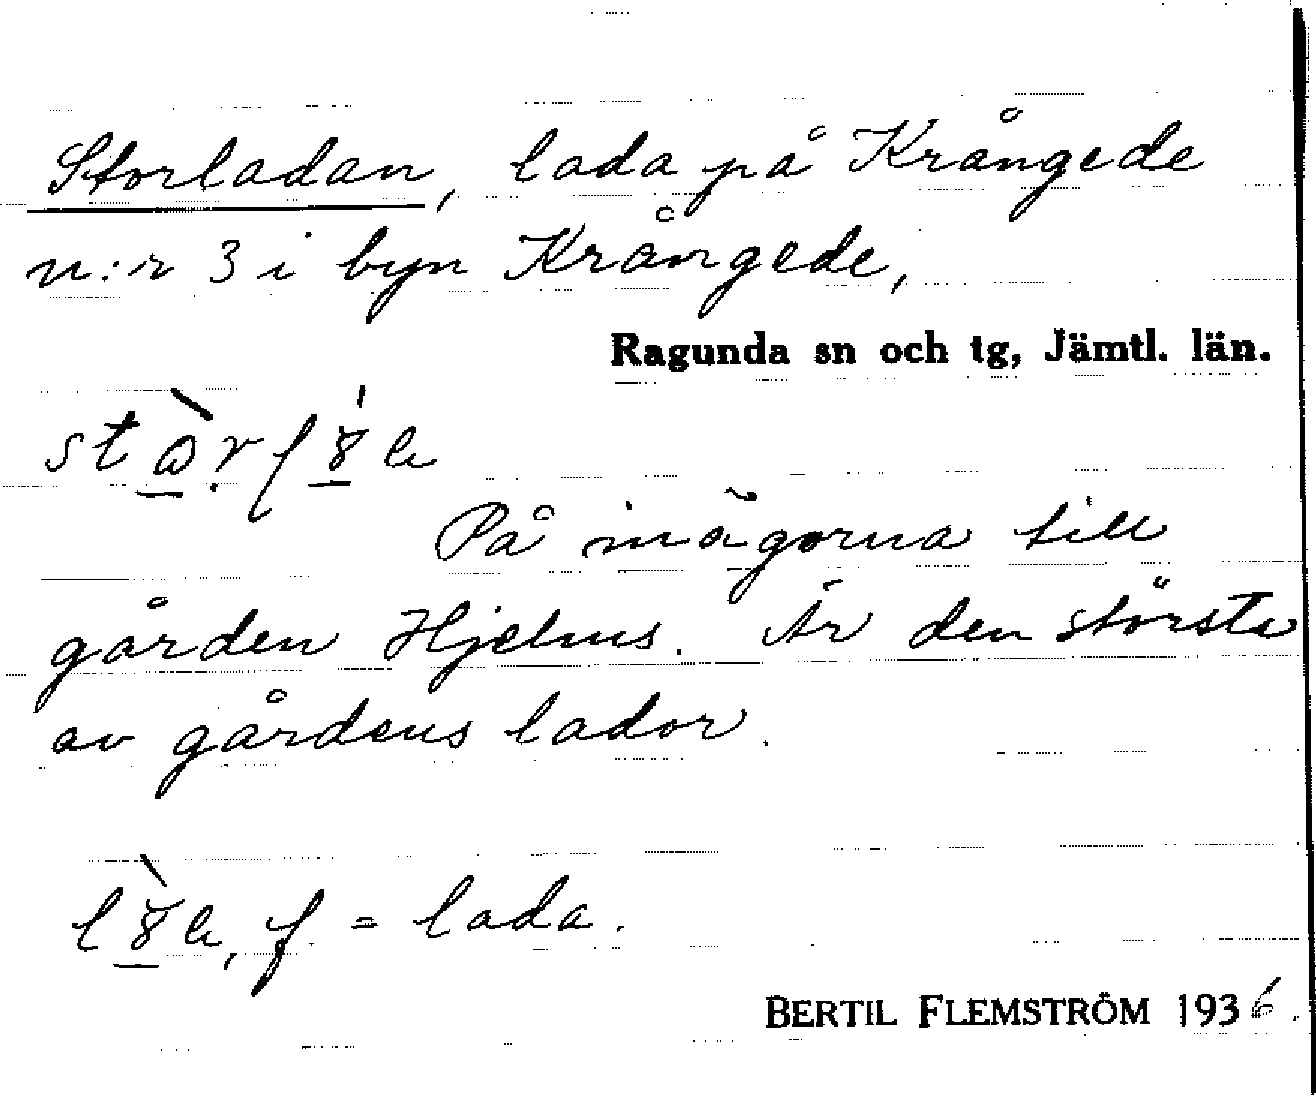 Storladan, lada på Krångede
n:r 3 i byn Krångede,
Ragunda sn och tg, Jämtl. län.
På inägorna till
gården Hjelms. Är den största
av gårdens lador.
f. = lada.
BERTIL FLEMSTRÖM 1936.